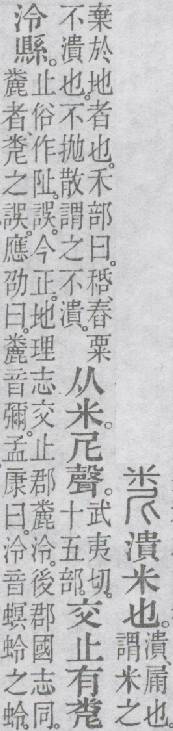 潰米也。潰、屚也。謂米之
棄於地者也。禾部曰。舂粟不潰也。不拋散謂之不潰。从米。尼聲。武夷切。十五部。交止有
泠縣。止俗作阯。誤。今正。地理志交止郡麊泠。後郡國志同。麊者、之誤。應劭曰。麊音彌。孟康曰。泠音螟蛉之蛉。